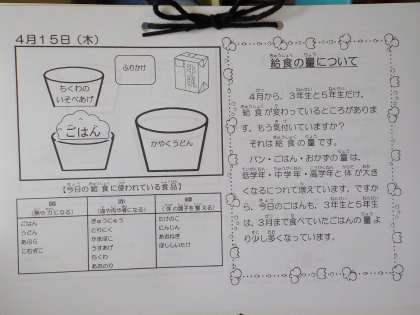 4月15日(木)
ふりかけ
ちくわの
いそべあげ
ごはん
かやくうどん
【今日の給食に使われている食品】
赤
黄
緑
ごはん
うどん
あぶら
こむぎこ
ぎゅうにゅう
とりにく
かまぼこ
うすあげ
ちくわ
あおのり
たけのこ
にんじん
あおねぎ
ほししいたけ
給食の量について
4月から、3年生と5年生だけ、
給食が変わっているところがありま
す。もう気付いていますか?
それは給食の量です。
パン・ごはん・おかずの量は、
低学年・中学年・高学年と体が大き
くなるにつれて増えています。ですか
ら、今日のごはんも、3年生と5年生
は、3月まで食べていたごはんの量よ
り少し多くなっています。